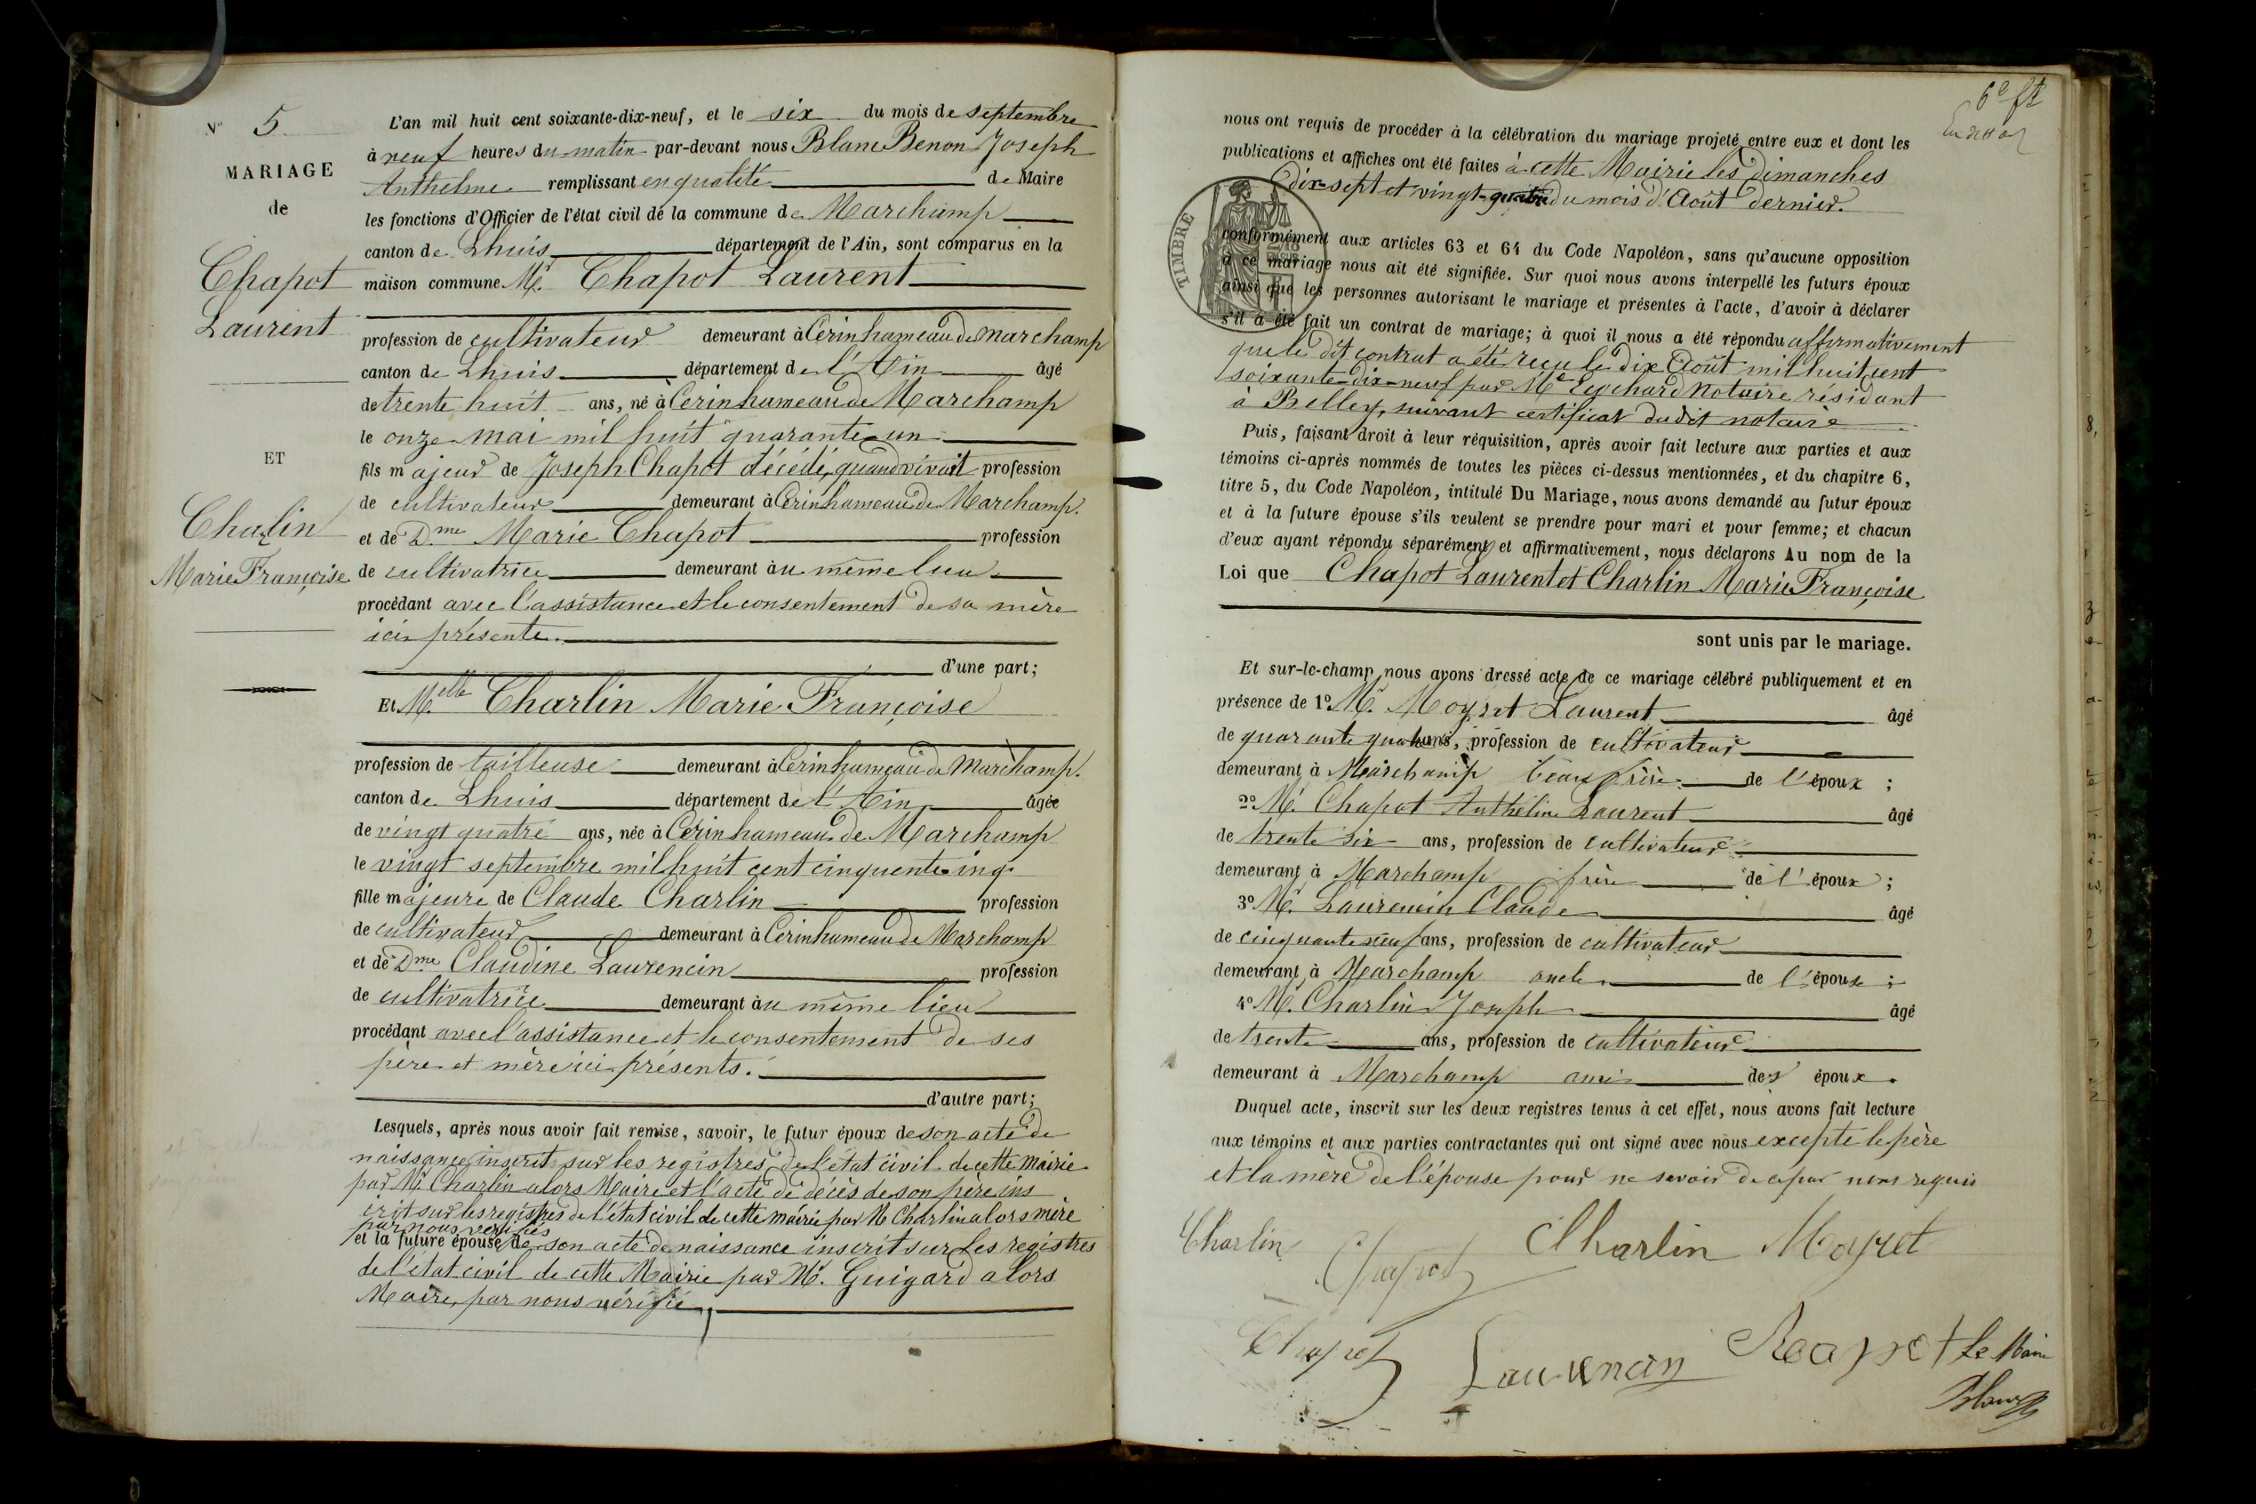 N° 5
MARIAGE
de
Chapot
Laurent
ET
Charlin
Marie Françoise
L'an mil huit cent soixante-dix-neuf, et le six du mois de septembre
à neuf heures du matin par-devant nous Blanc Benon Joseph
Anthelme remplissant en qualité de Maire
les fonctions d'Officier de l'état civil de la commune de Marchamp
canton de Lhuis département de l'Ain, sont comparus en la
maison commune Mr. Chapot Laurent
profession de cultivateur demeurant à Cerin hameau de Marchamp
canton de Lhuis département de l'Ain âgé
de trente huit ans, né à Cerin hameau de Marchamp
le onze mai mil huit quarante un
fils majeur de Joseph Chapot décédé, quand vivait profession
de cultivateur demeurant à Cerin hameau de Marchamp.
et de Dme Marie Chapot profession
de cultivatrice demeurant au même lieu
procédant avec l'assistance et le consentement de sa mère
ici présente.
d'une part;
Et Melle Charlin Marie Françoise
profession de tailleuse demeurant à Cerin hameau de Marchamp.
canton de Lhuis département de l'Ain âgée
de vingt quatre ans, née à Cerin hameau de Marchamp
le vingt septembre mil huit cent cinquante cinq
fille majeure de Claude Charlin profession
de cultivateur demeurant à Cerin hameau de Marchamp
et de Dme Claudine Laurencin profession
de cultivatrice demeurant au même lieu
procédant avec l'assistance et le consentement de ses
père et mère ici présents.
d'autre part;
Lesquels, après nous avoir fait remise, savoir, le futur époux de son acte de
naissance inscrit sur les registres de l'état civil de cette Mairie
par Mr Charlin alors Maire et l'acte de décès de son père ins
crit sur les registres de l'état civil de cette mairie par Mr Charlin alors mère
par nous vérifiés
et la future épouse de son acte de naissance inscrit sur les registres
de l'état civil de cette Mairie par Mr. Guigard alors
Maire, par nous vérifié,
6e ft
nous ont requis de procéder à la célébration du mariage projeté entre eux et dont les
publications et affiches ont été faites à cette Mairie les dimanches
dix-sept et vingt-quatre du mois d'Août dernier.
TIMBRE
conformément aux articles 63 et 64 du Code Napoléon, sans qu'aucune opposition
à ce mariage nous ait été signifiée. Sur quoi nous avons interpellé les futurs époux
ainsi que les personnes autorisant le mariage et présentes à l'acte, d'avoir à déclarer
s'il a été fait un contrat de mariage; à quoi il nous a été répondu affirmativement
que le dit contrat a été reçu le dix Août mil huit cent
soixante-dix-neuf par Me notaire résidant
à Belley, suivant certificat dudit notaire
Puis, faisant droit à leur réquisition, après avoir fait lecture aux parties et aux
témoins ci-après nommés de toutes les pièces ci-dessus mentionnées, et du chapitre 6,
titre 5, du Code Napoléon, intitulé Du Mariage, nous avons demandé au futur époux
et à la future épouse s'ils veulent se prendre pour mari et pour femme; et chacun
d'eux ayant répondu séparément et affirmativement, nous déclarons Au nom de la
Loi que Chapot Laurent et Charlin Marie Françoise
sont unis par le mariage.
Et sur-le-champ nous avons dressé acte de ce mariage célébré publiquement et en
présence de 1° Mr. Moyret Laurent âgé
de quarante quatre ans, profession de cultivateur
demeurant à Marchamp beau frère de l'époux ;
2° Mr. Chapot Anthelme Laurent âgé
de trente six ans, profession de cultivateur
demeurant à Marchamp frère de l'époux ;
3° Mr. Laurencin Claude âgé
de cinquante neuf ans, profession de cultivateur
demeurant à Marchamp oncle de l'épouse ;
4° Mr. Charlin Joseph âgé
de trente ans, profession de cultivateur
demeurant à Marchamp ami des époux.
Duquel acte, inscrit sur les deux registres tenus à cet effet, nous avons fait lecture
aux témoins et aux parties contractantes qui ont signé avec nous excepté le père
et la mère de l'épouse pour ne savoir de ce par nous requis
Charlin Chapot Charlin Moyret
Chapot Laurencin Chapot Le Maire
Blanc